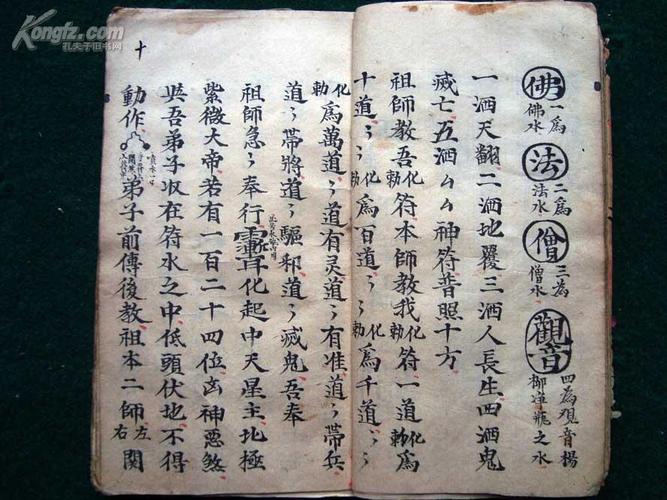 Kongfz.com
孔夫子旧书网
佛 一為佛水 法 二為法水 僧 三為僧水 觀音 四為观音楊柳瓶之水
一洒天翻二洒地覆三洒人長生四洒鬼
滅亡五洒ムム神符普照十方
祖師教吾勅化符本師教我勅化符一道勅化為
十道〻〻勅化為百道〻〻勅化為千道〻〻
勅化為萬道〻道有灵道〻有准道〻帶兵
道〻帶將道〻驅邪道〻滅鬼吾奉
祖師急〻奉行化起中天星主北極
紫微大帝若有一百二十四位玄神惡煞
與吾弟子收在符水之中低頭伏地不得
動作弟子前傳後教祖本二師左右関
十